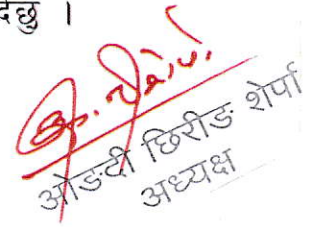 दछु ।
ओङदी छिरीङ शेर्पा
अध्यक्ष